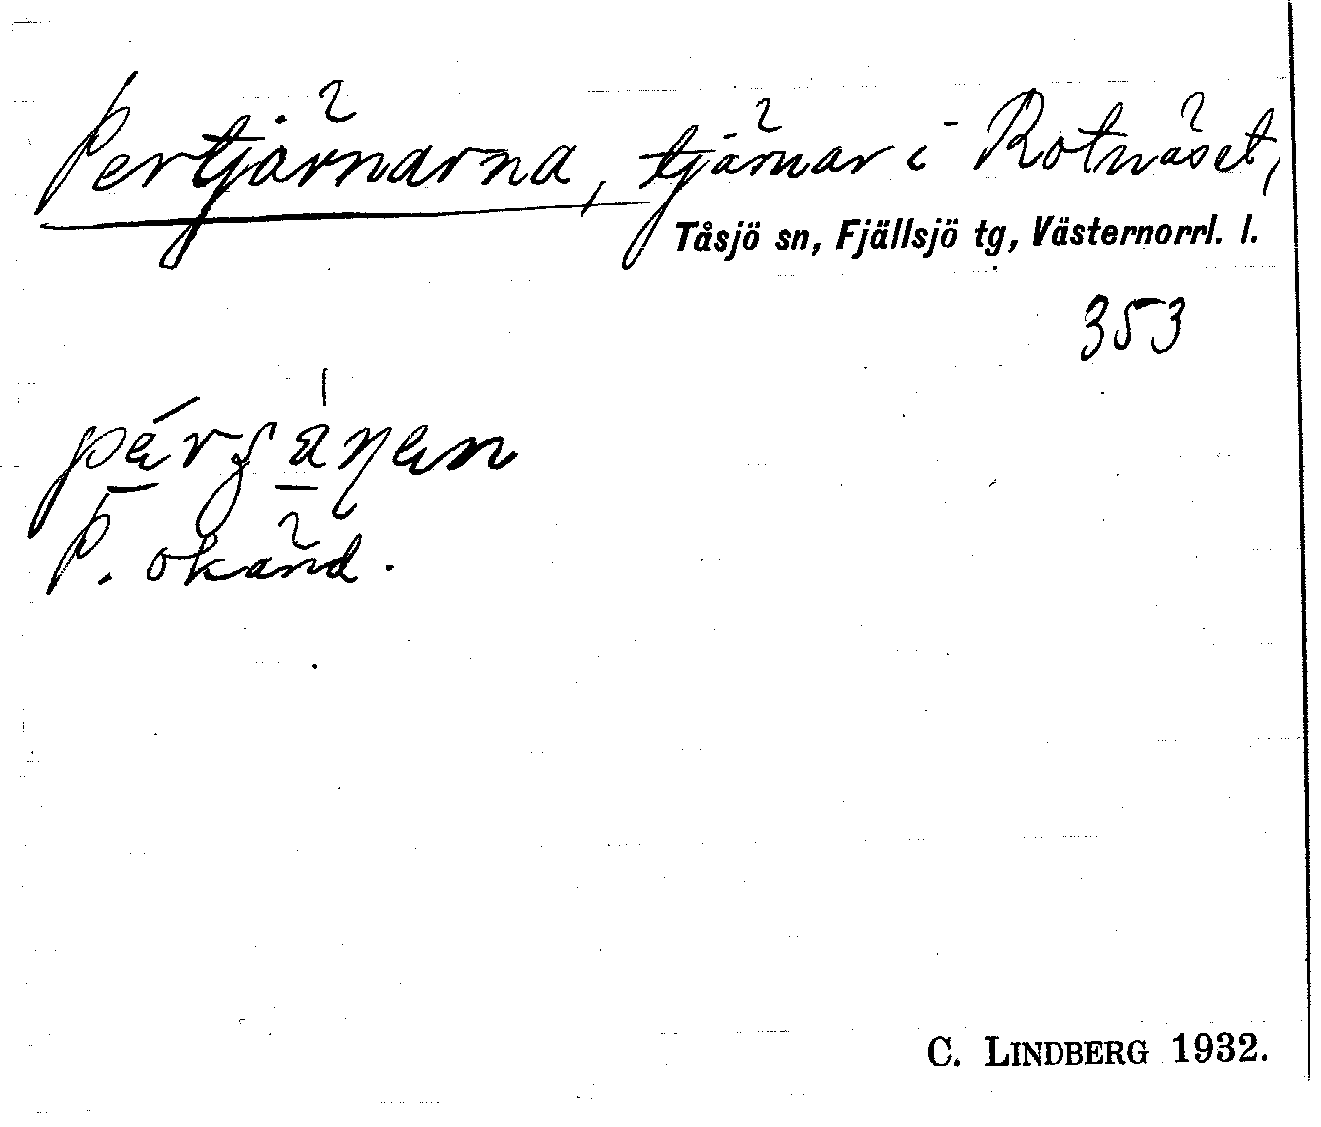 Pertjärnarna, tjärnar i Rotnäset,
Tåsjö sn, Fjällsjö tg, Västernorrl. l.
353
P. okänd.
C. LINDBERG 1932.